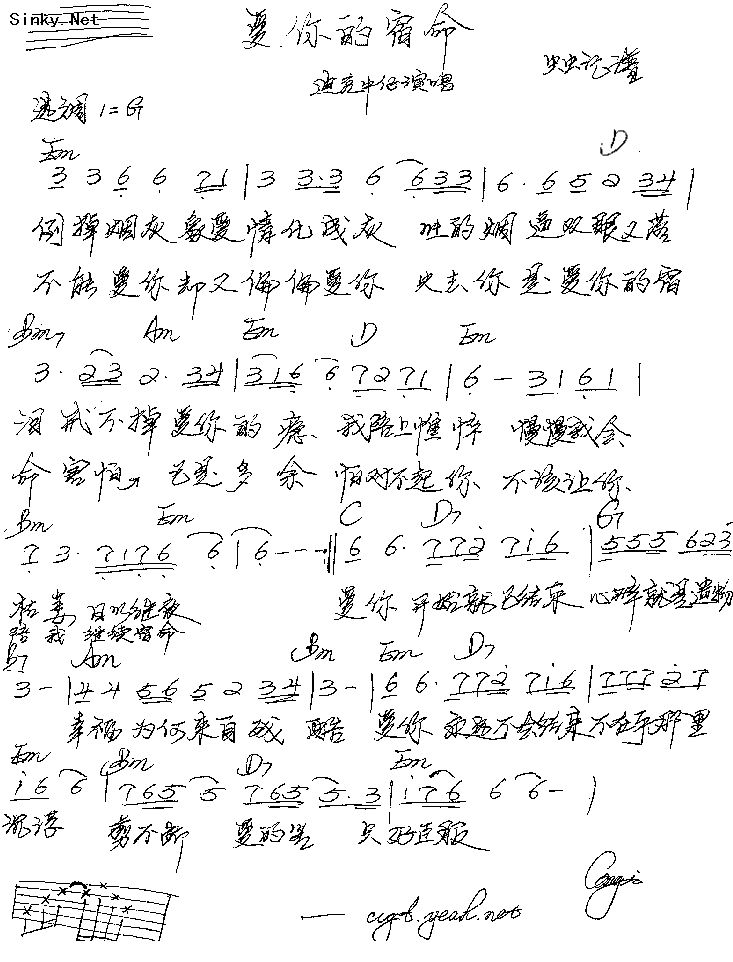 Sinky.Net
爱你的宿命
迪克牛仔演唱
虫虫记谱
选调 1=G
Em D
3 3 6 6 71 | 3 3·3 6 6 33 | 6· 6 5 2 34 |
倒掉烟灰 象爱情化成灰 的烟 双眼又落
不能爱你却又偏偏爱你 失去你是爱你的宿
Bm7 Am Em D Em
3· 23 2· 34 | 316 6 72 71 | 6 - 31 61 |
泪 戒不掉爱你的瘾、我陪上憔悴 慢慢我会
命 害怕 已是多余 怕对不起你 不该让你、
Bm Em C D7 G7
7 3· 7176 6 | 6 - - - :‖ 6 6· 772 7i6 | 555 623
枯萎 日以继夜 爱你 开始就已结束 心碎就是遗物
陪我 继续宿命
B7 Am Bm Em D7
3 - | 44 56 5 2 34 | 3 - | 6 6· 772 7i6 | 777 27
幸福为何来自残 酷 爱你 永远不会结束 不在乎那里
Em Bm D7 Em
i6 6 | 765 5 765 5· 3 | i76 6 6 - |
沉浮 剪不断 爱的 只好臣服
— cygb.yeah.net